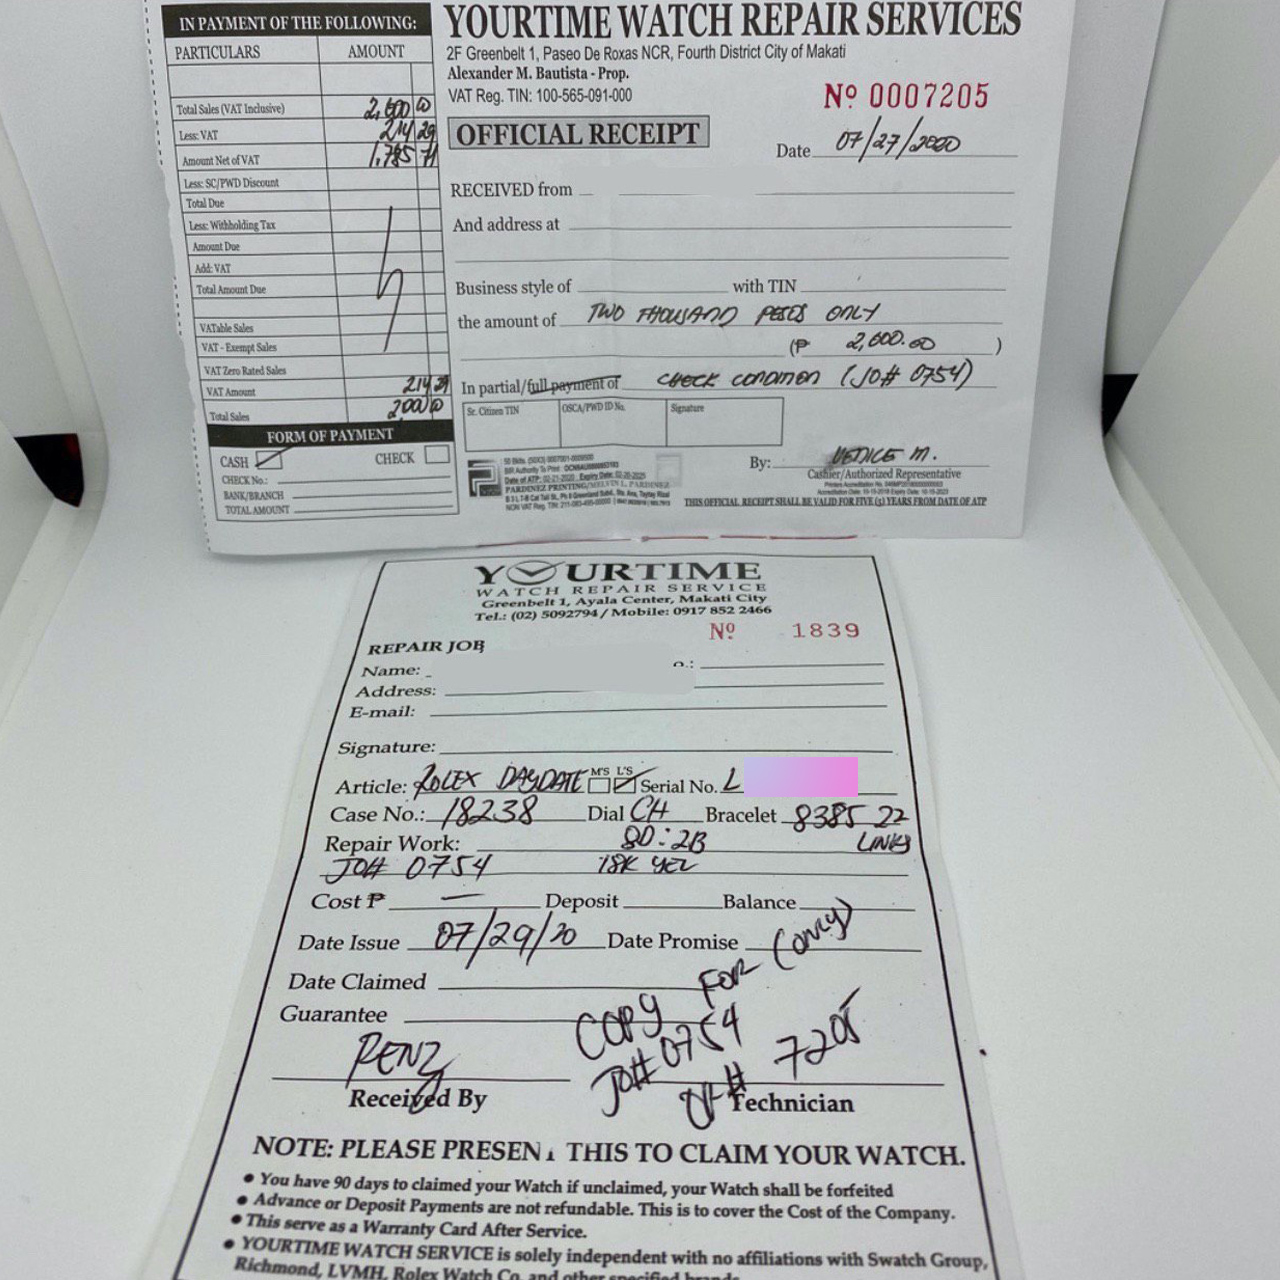 IN PAYMENT OF THE FOLLOWING:
PARTICULARS AMOUNT
Total Sales (VAT Inclusive) 2,000 00
Less: VAT 214 29
Amount Net of VAT 1,785 71
Less: SC/PWD Discount
Total Due
Less: Withholding Tax
Amount Due
Add: VAT
Total Amount Due
VATable Sales
VAT - Exempt Sales
VAT Zero Rated Sales
VAT Amount 214 29
Total Sales 2000 00
FORM OF PAYMENT
CASH CHECK
CHECK No.:
BANK/BRANCH
TOTAL AMOUNT
YOURTIME WATCH REPAIR SERVICES
2F Greenbelt 1, Paseo De Roxas NCR, Fourth District City of Makati
Alexander M. Bautista - Prop.
VAT Reg. TIN: 100-565-091-000
Nº 0007205
OFFICIAL RECEIPT
Date 07/27/2020
RECEIVED from
And address at
Business style of with TIN
the amount of TWO THOUSAND PESOS ONLY
(₱ 2,000.00 )
In partial/full payment of CHECK CONDITION (JO# 0754)
Sr. Citizen TIN OSCA/PWD ID No. Signature
By: VENICE M.
Cashier/Authorized Representative
PARDINEZ PRINTING/MELVIN L. PARDINEZ
THIS OFFICIAL RECEIPT SHALL BE VALID FOR FIVE (5) YEARS FROM DATE OF ATP
YOURTIME
WATCH REPAIR SERVICE
Greenbelt 1, Ayala Center, Makati City
Tel.: (02) 5092794 / Mobile: 0917 852 2466
Nº 1839
REPAIR JOB
Name: o.:
Address:
E-mail:
Signature:
Article: ROLEX DAYDATE M'S L'S Serial No. L
Case No.: 18238 Dial CH Bracelet 8385 22
Repair Work: 8D:2B LINKS
JO# 0754 18K YEL
Cost ₱ — Deposit Balance
Date Issue 07/29/20 Date Promise
Date Claimed
Guarantee
COPY FOR (ONLY)
JO# 0754
OR# 7205
RENZ
Received By Technician
NOTE: PLEASE PRESENT THIS TO CLAIM YOUR WATCH.
● You have 90 days to claimed your Watch if unclaimed, your Watch shall be forfeited
● Advance or Deposit Payments are not refundable. This is to cover the Cost of the Company.
● This serve as a Warranty Card After Service.
● YOURTIME WATCH SERVICE is solely independent with no affiliations with Swatch Group,
Richmond, LVMH, Rolex Watch Co. and other specified brands.